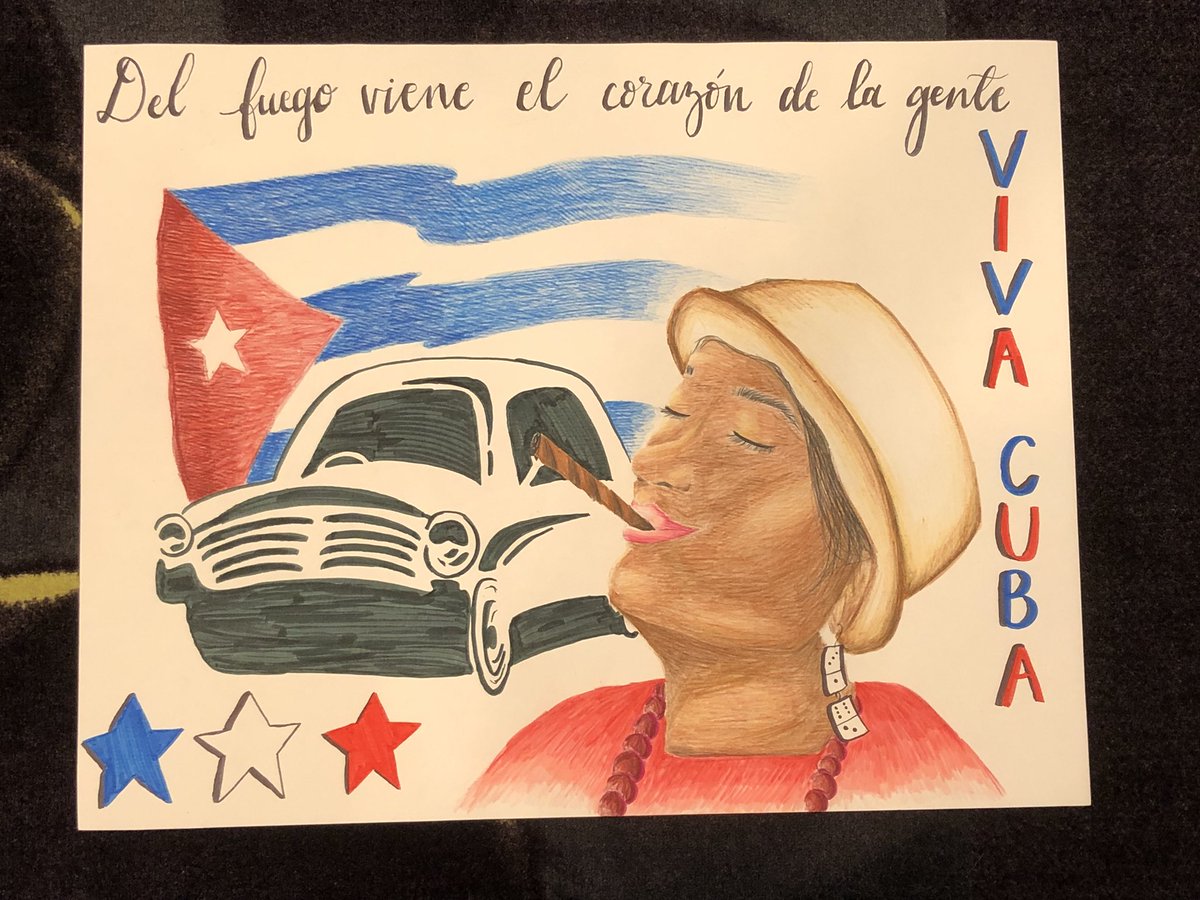 Del fuego viene el corazón de la gente
VIVA CUBA